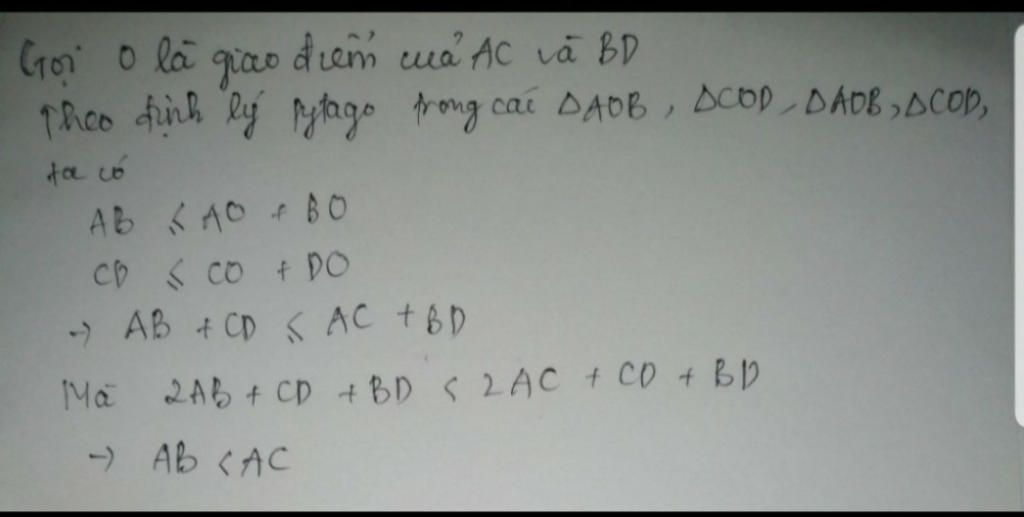 Gọi O là giao điểm của AC và BD
Theo định lý pytago trong các ΔAOB, ΔCOD, ΔAOB, ΔCOD,
ta có
AB ≤ AO + BO
CD ≤ CO + DO
→ AB + CD ≤ AC + BD
Mà 2AB + CD + BD < 2AC + CD + BD
→ AB < AC